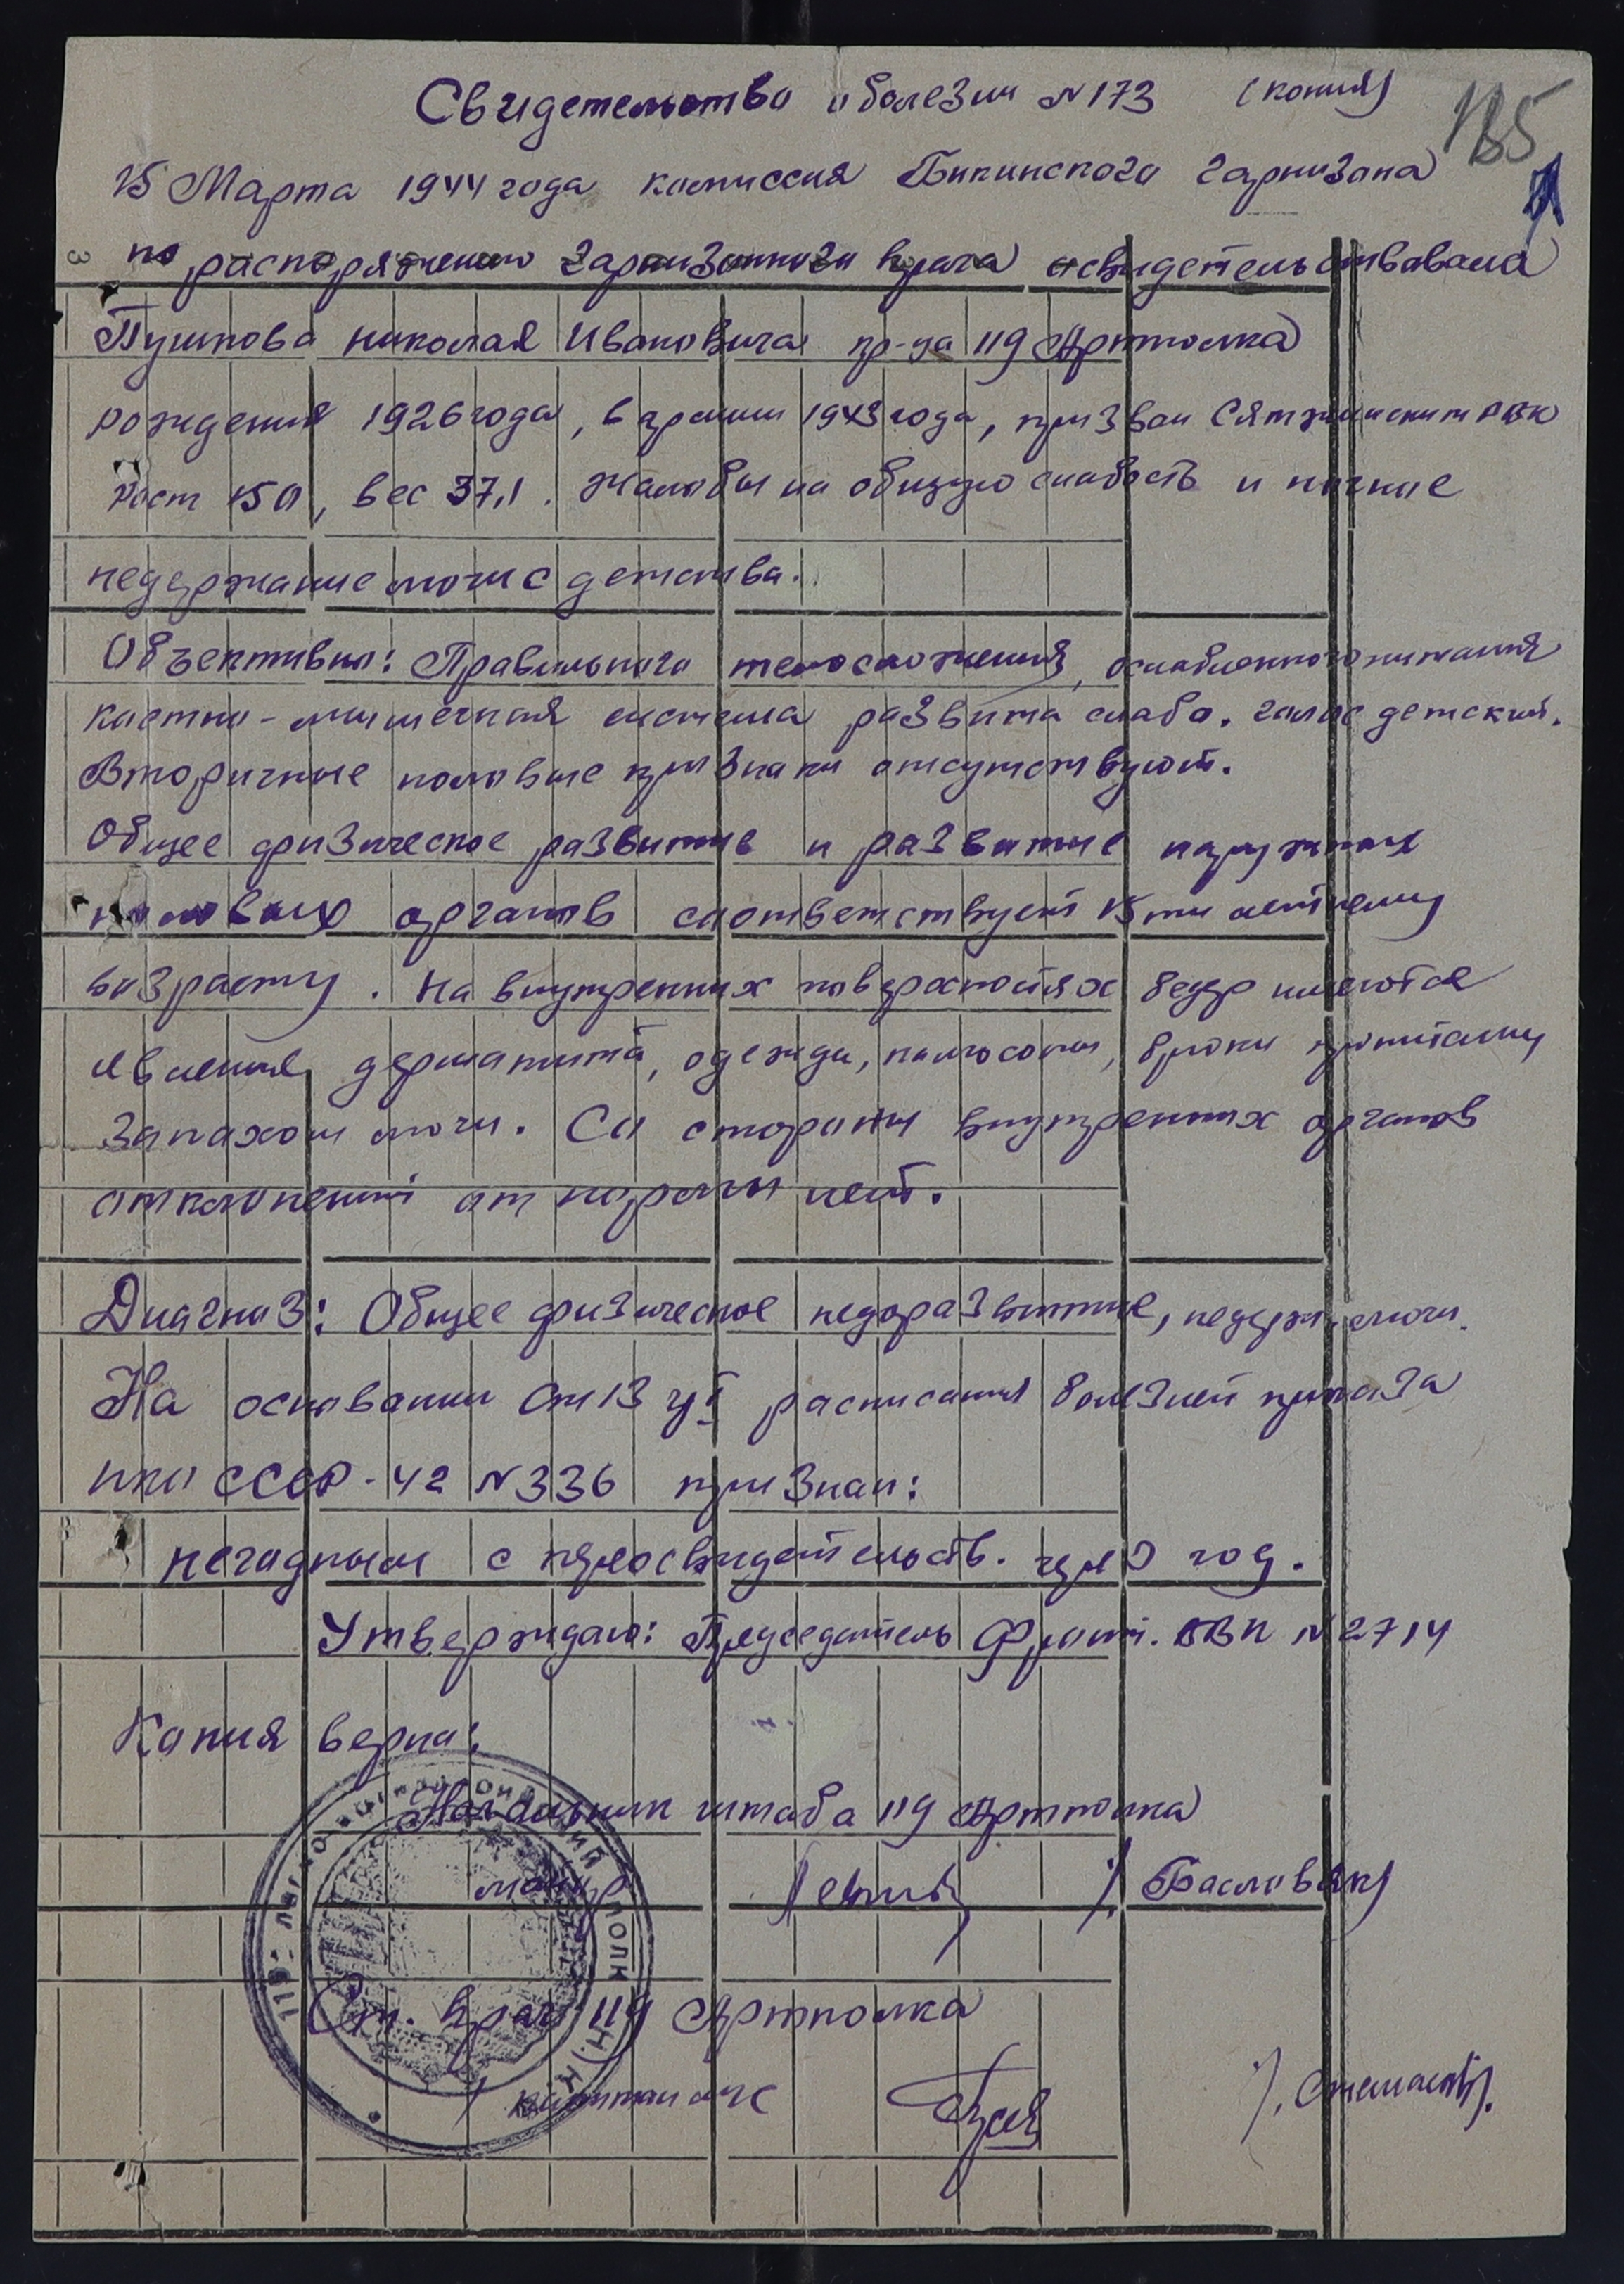 Свидетельство о болезни N 173 (копия)
185
15 Марта 1944 года комиссия Бикинского гарнизона
по распоряжению гарнизонного врача освидетельствовала
Пушкова Николая Ивановича кр-ца 119 Артполка
рождения 1926 года, в армии 1943 года, призван РВК
Рост 150, вес 37,1. Жалобы на общую слабость и ночные
недержание мочи с детства.
Объективно: Правильного телосложения, ослабленного питания
костно-мышечная система развита слабо. голос детский.
Вторичные половые признаки отсутствуют.
Общее физическое развитие и развитие наружных
половых органов соответствует 15ти летнему
возрасту. На внутренних поверхностях бедер имеются
явления дерматита, одежда, кальсоны, брюки пропитаны
запахом мочи. Со стороны внутренних органов
отклонений от нормы нет.
Диагноз: Общее физическое недоразвитие, недерж. мочи.
На основании Ст 13 гр I расписания болезней приказа
НКО СССР-42 N 336 признан:
негодным с переосвидетельств. через год.
Утверждаю: Председатель Фронт. ВВК N 2714
Копия верна:
Начальник штаба 119 Артполка
майор /Басловяк/
Ст. врач 119 Артполка
капитан м/с
ПОЛК Н.К.